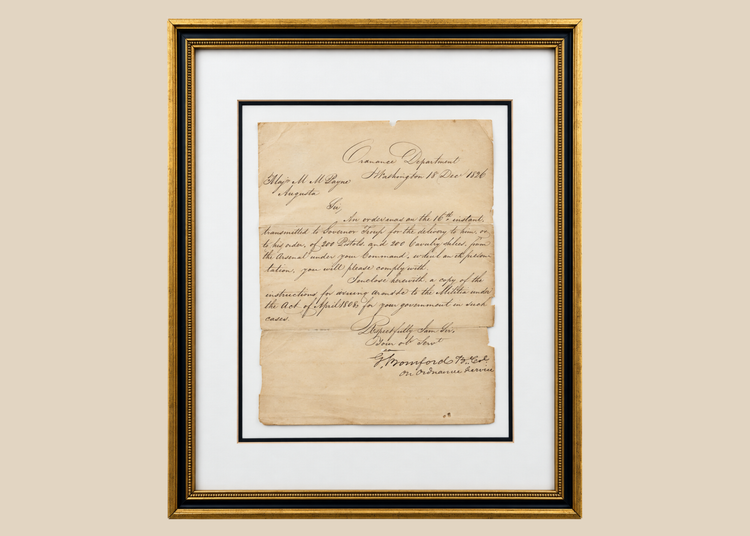 Ordnance Department
Washington 18 Dec 1826
Majr M M Payne
Augusta
Sir,
An order was on the 16th instant,
transmitted to Governor Troup for the delivery to him, or
to his order, of 200 Pistols and 200 Cavalry sabres, from
the Arsenal under your Command, which on its presen-
tation, you will please comply with.
I enclose herewith a copy of the
instructions for issuing arms &a to the Militia under
the Act of April 1808, for your government in such
cases.
Respectfully I am Sir,
Your obt Servt
G. Bomford Bt Col.
on Ordnance Service